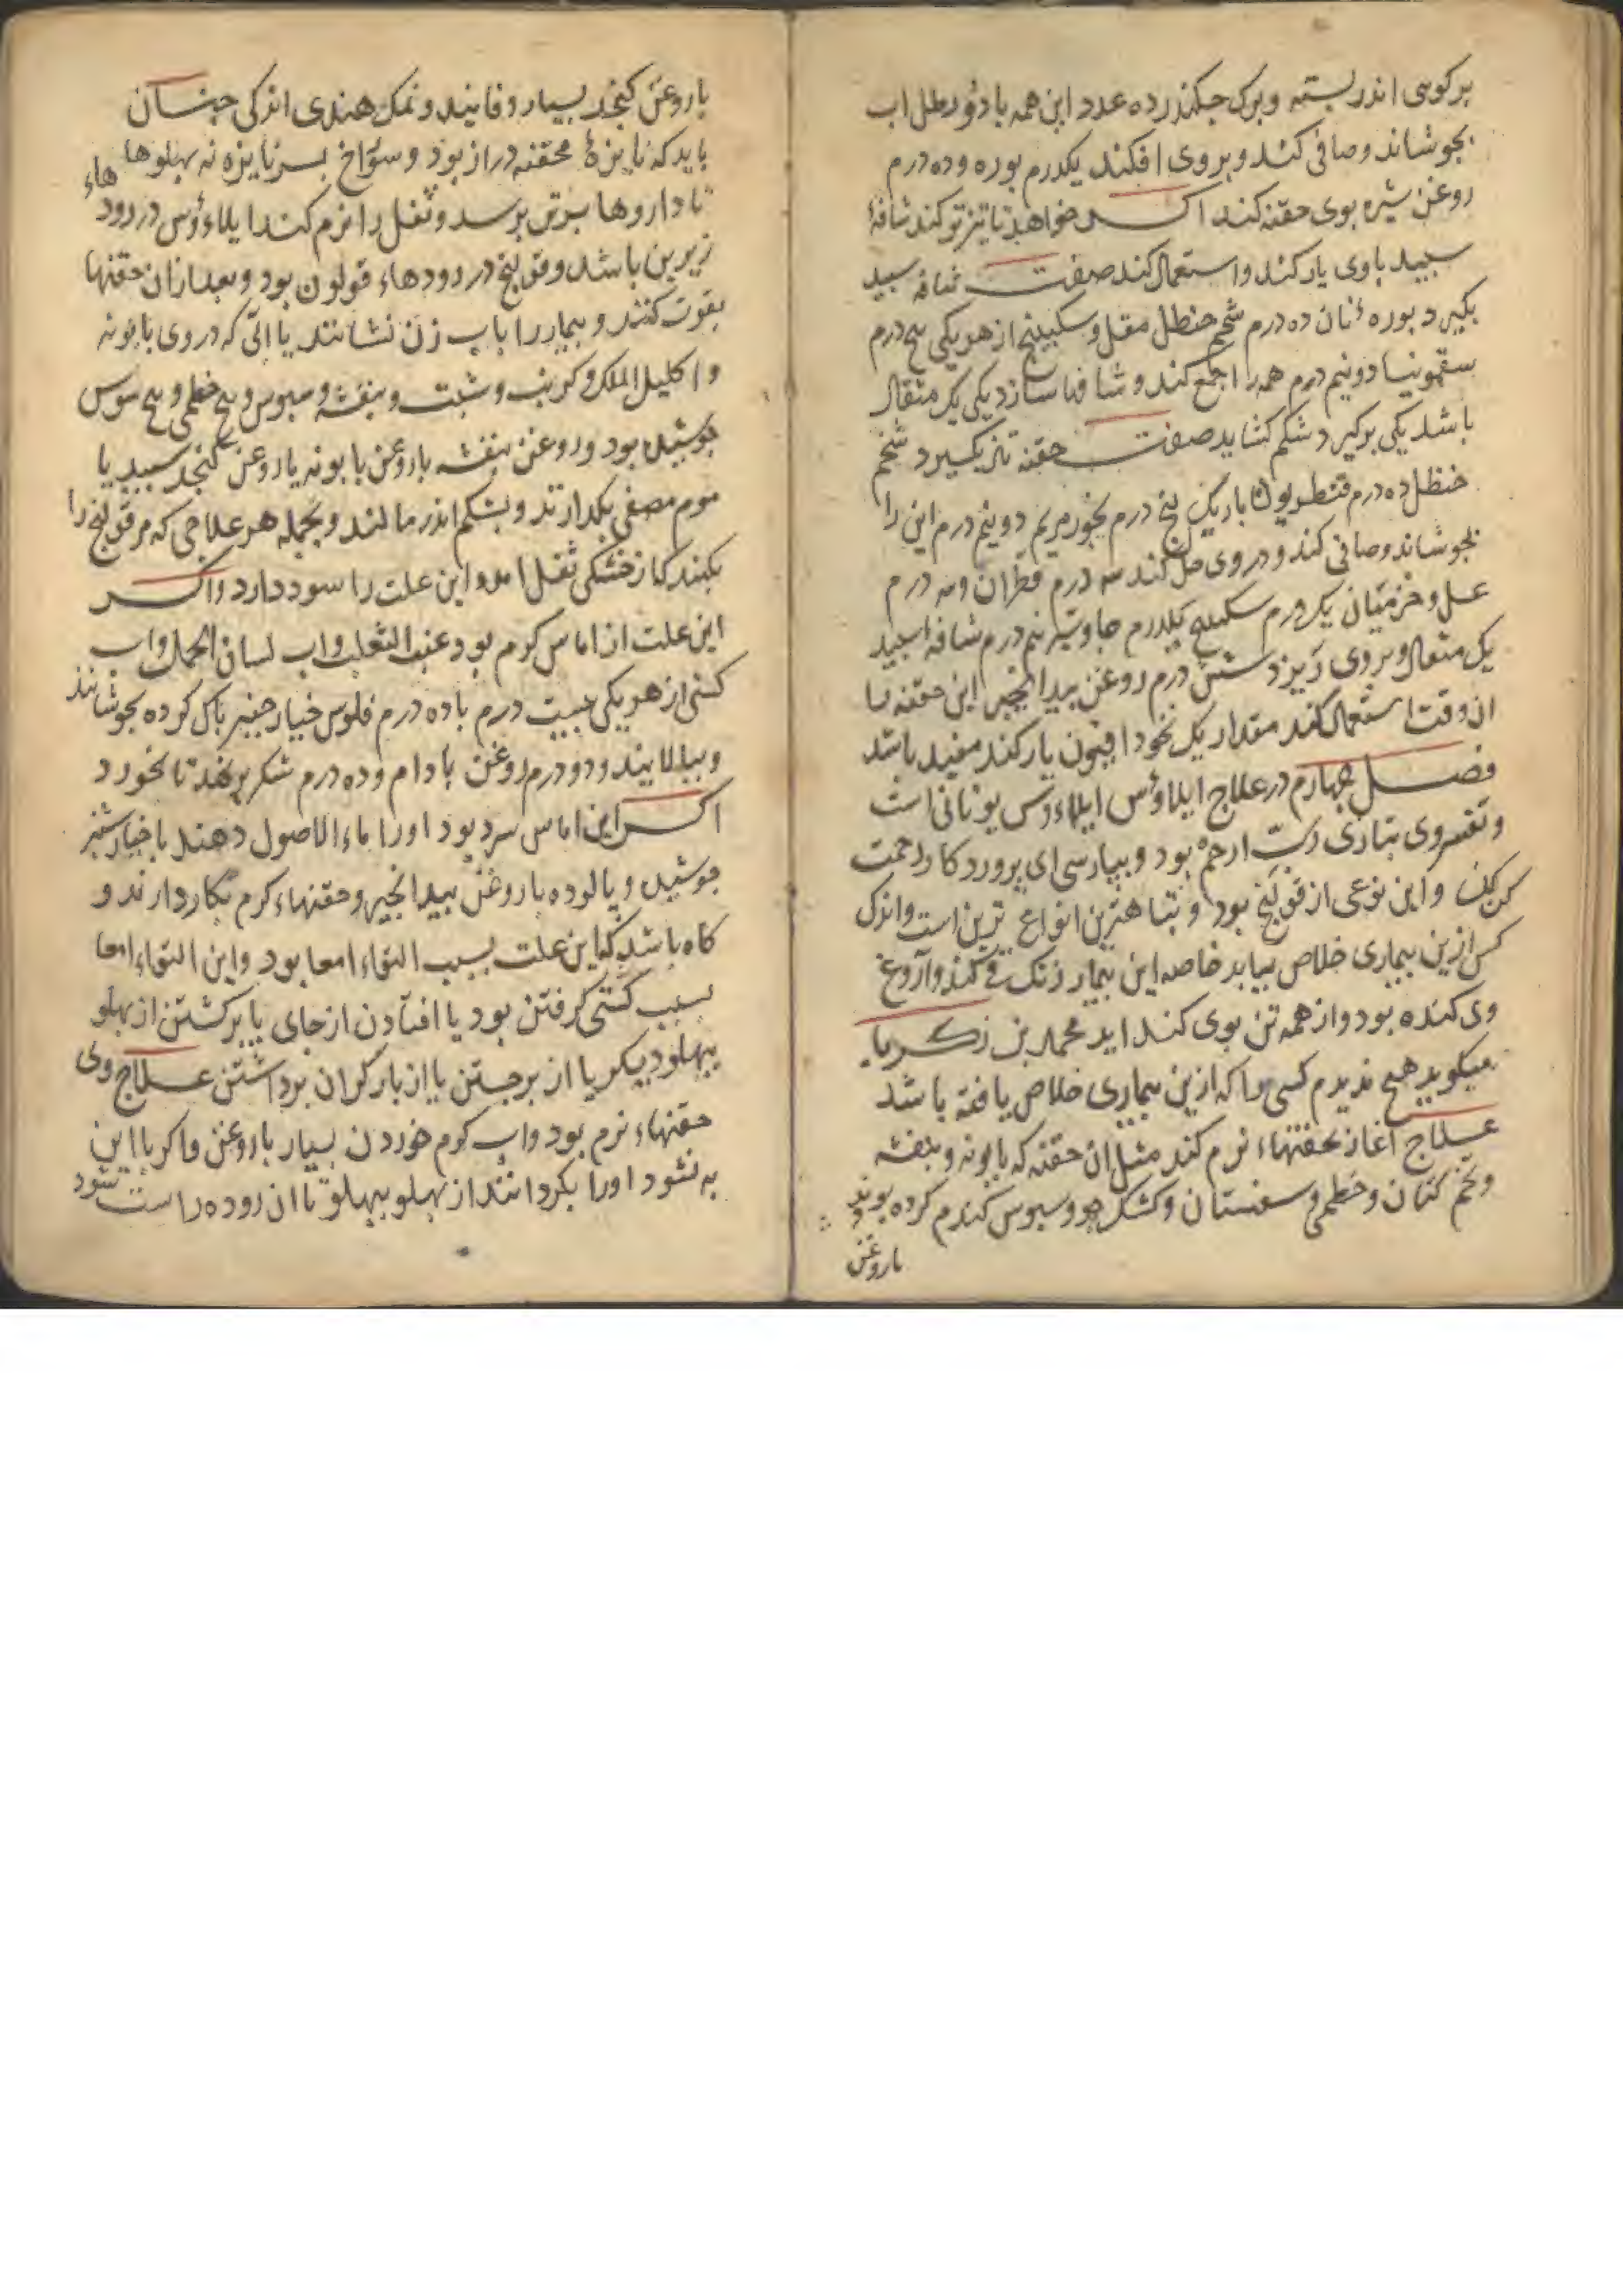 برکوسی اندر بسته و برک جکندر ده عدد این همه با دو رطل اب
بجوشاند و صافی کند و بروی افکند یکدرم بوره و ده درم
روغن شیره بوی حقنه کند اکر خواهد تا تیزتر کند شافهٔ
سبید باوی یار کند و استعمال کند صفت شافه سبید
بکیرد بوره نان ده درم شحم حنظل مقل و سکبینج از هر یکی پنج درم
سقمونیا دو نیم درم همه را جمع کند و شافها سازد یکی یک مثقال
باشد یکی برکیرد شکم کشاید صفت حقنه تیز بکیرد شحم
حنظل ده درم قنطوریون باریک پنج درم بخور مریم دو نیم درم این را
بجوشاند و صافی کند و در وی حل کند سه درم قطران و سه درم
عسل و خرمیان یک درم سکبینج یکدرم جاوشیر نیم درم شافه اسبید
یک مثقال و بروی ریزد شش درم روغن بیدانجیر این حقنه تا
ان وقت استعمال کند مقدار یک نخود افیون یار کند مفید باشد
فصل چهارم در علاج ایلاوس ایلاءوس یونانی است
و تفسیر وی بتازی رب ارحم بود و بپارسی ای پروردکار رحمت
کن و این نوعی از قولنج بود و بتباهترین انواع ترین است و اندک
کس ازین بیماری خلاص بیابد خاصه این بیمار زنک قی کند و آروغ
وی کنده بود و از همه تن بوی کند اید محمد بن زکریا
میکوید هیچ ندیدم کسی را که ازین بیماری خلاص یافته باشد
علاج آغاز بحقنهاء نرم کند مثل ان حقنه که بابونه و بنفشه
و تخم کتان و خطمی و سفستان و کشک جو و سبوس کندم کرده بوند و
باروغن
باروغن کنجد بسیار و فانید و نمک هندی اندکی جنان
باید که نایزهٔ محقنه دراز بود و سوراخ بسر نایزه نه بهلوها
تا داروها برتر برسد و ثفل را نرم کند ایلاءوس در رودهاء
زیرین باشد و قولنج در رودهاء قولون بود و بعد ازان حقنها
بقوت کنند و بیمار را باب زن نشانند یا ابی که در وی بابونه
و اکلیل الملک و کرنب و شبت و بنفشه و سبوس و بیخ خطمی و بیخ سوس
جوشیده بود و روغن بنفشه یا روغن بابونه یا روغن کنجد سبید با
موم مصفی بکدازند و بشکم اندر مالند و بجمله هر علاجی که مر قولنج را
بکنند که از خشکی ثفل امد این علت را سود دارد و اکر
این علت از اماس کرم بود عنب الثعلب و اب لسان الحمل و اب
کسنی از هر یکی بیست درم با ده درم فلوس خیار جنبر باک کرده بجوشانند
و ببالایند و دو درم روغن بادام و ده درم شکر برنهند تا بخورد
اکر این اماس سرد بود اورا ماء الاصول دهند با خیار شنبر
جوشیده و پالوده با روغن بیدانجیر و حقنهاء کرم بکار دارند و
کاه باشد که این علت بسبب التواء امعا بود و این التواء امعا
بسبب کشتی کرفتن بود یا افتادن از جای یا برکشتن از بهلو
ببهلو دیکر یا از برجستن یا از بار کران برداشتن علاج وی
حقنهاء نرم بود و اب کرم خوردن بسیار با روغن و اکر با این
به نشود اورا بکردانند از بهلو ببهلو تا ان روده راست شود